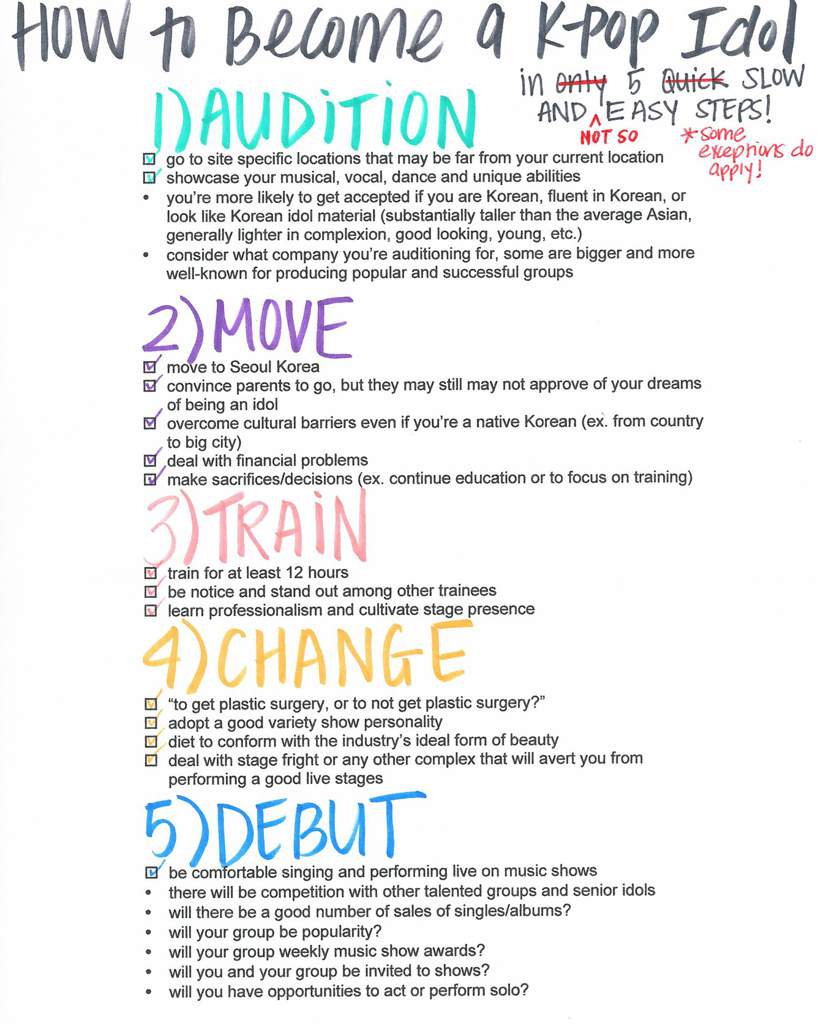 HOW to BECOME a K-POP Idol
in only 5 Quick SLOW
AND EASY STEPS!
NOT SO
*some
exceptions do
apply!
1) AUDITION
go to site specific locations that may be far from your current location
showcase your musical, vocal, dance and unique abilities
• you're more likely to get accepted if you are Korean, fluent in Korean, or
look like Korean idol material (substantially taller than the average Asian,
generally lighter in complexion, good looking, young, etc.)
• consider what company you're auditioning for, some are bigger and more
well-known for producing popular and successful groups
2) MOVE
move to Seoul Korea
convince parents to go, but they may still may not approve of your dreams
of being an idol
overcome cultural barriers even if you're a native Korean (ex. from country
to big city)
deal with financial problems
make sacrifices/decisions (ex. continue education or to focus on training)
3) TRAIN
train for at least 12 hours
be notice and stand out among other trainees
learn professionalism and cultivate stage presence
4) CHANGE
"to get plastic surgery, or to not get plastic surgery?"
adopt a good variety show personality
diet to conform with the industry's ideal form of beauty
deal with stage fright or any other complex that will avert you from
performing a good live stages
5) DEBUT
be comfortable singing and performing live on music shows
• there will be competition with other talented groups and senior idols
• will there be a good number of sales of singles/albums?
• will your group be popularity?
• will your group weekly music show awards?
• will you and your group be invited to shows?
• will you have opportunities to act or perform solo?